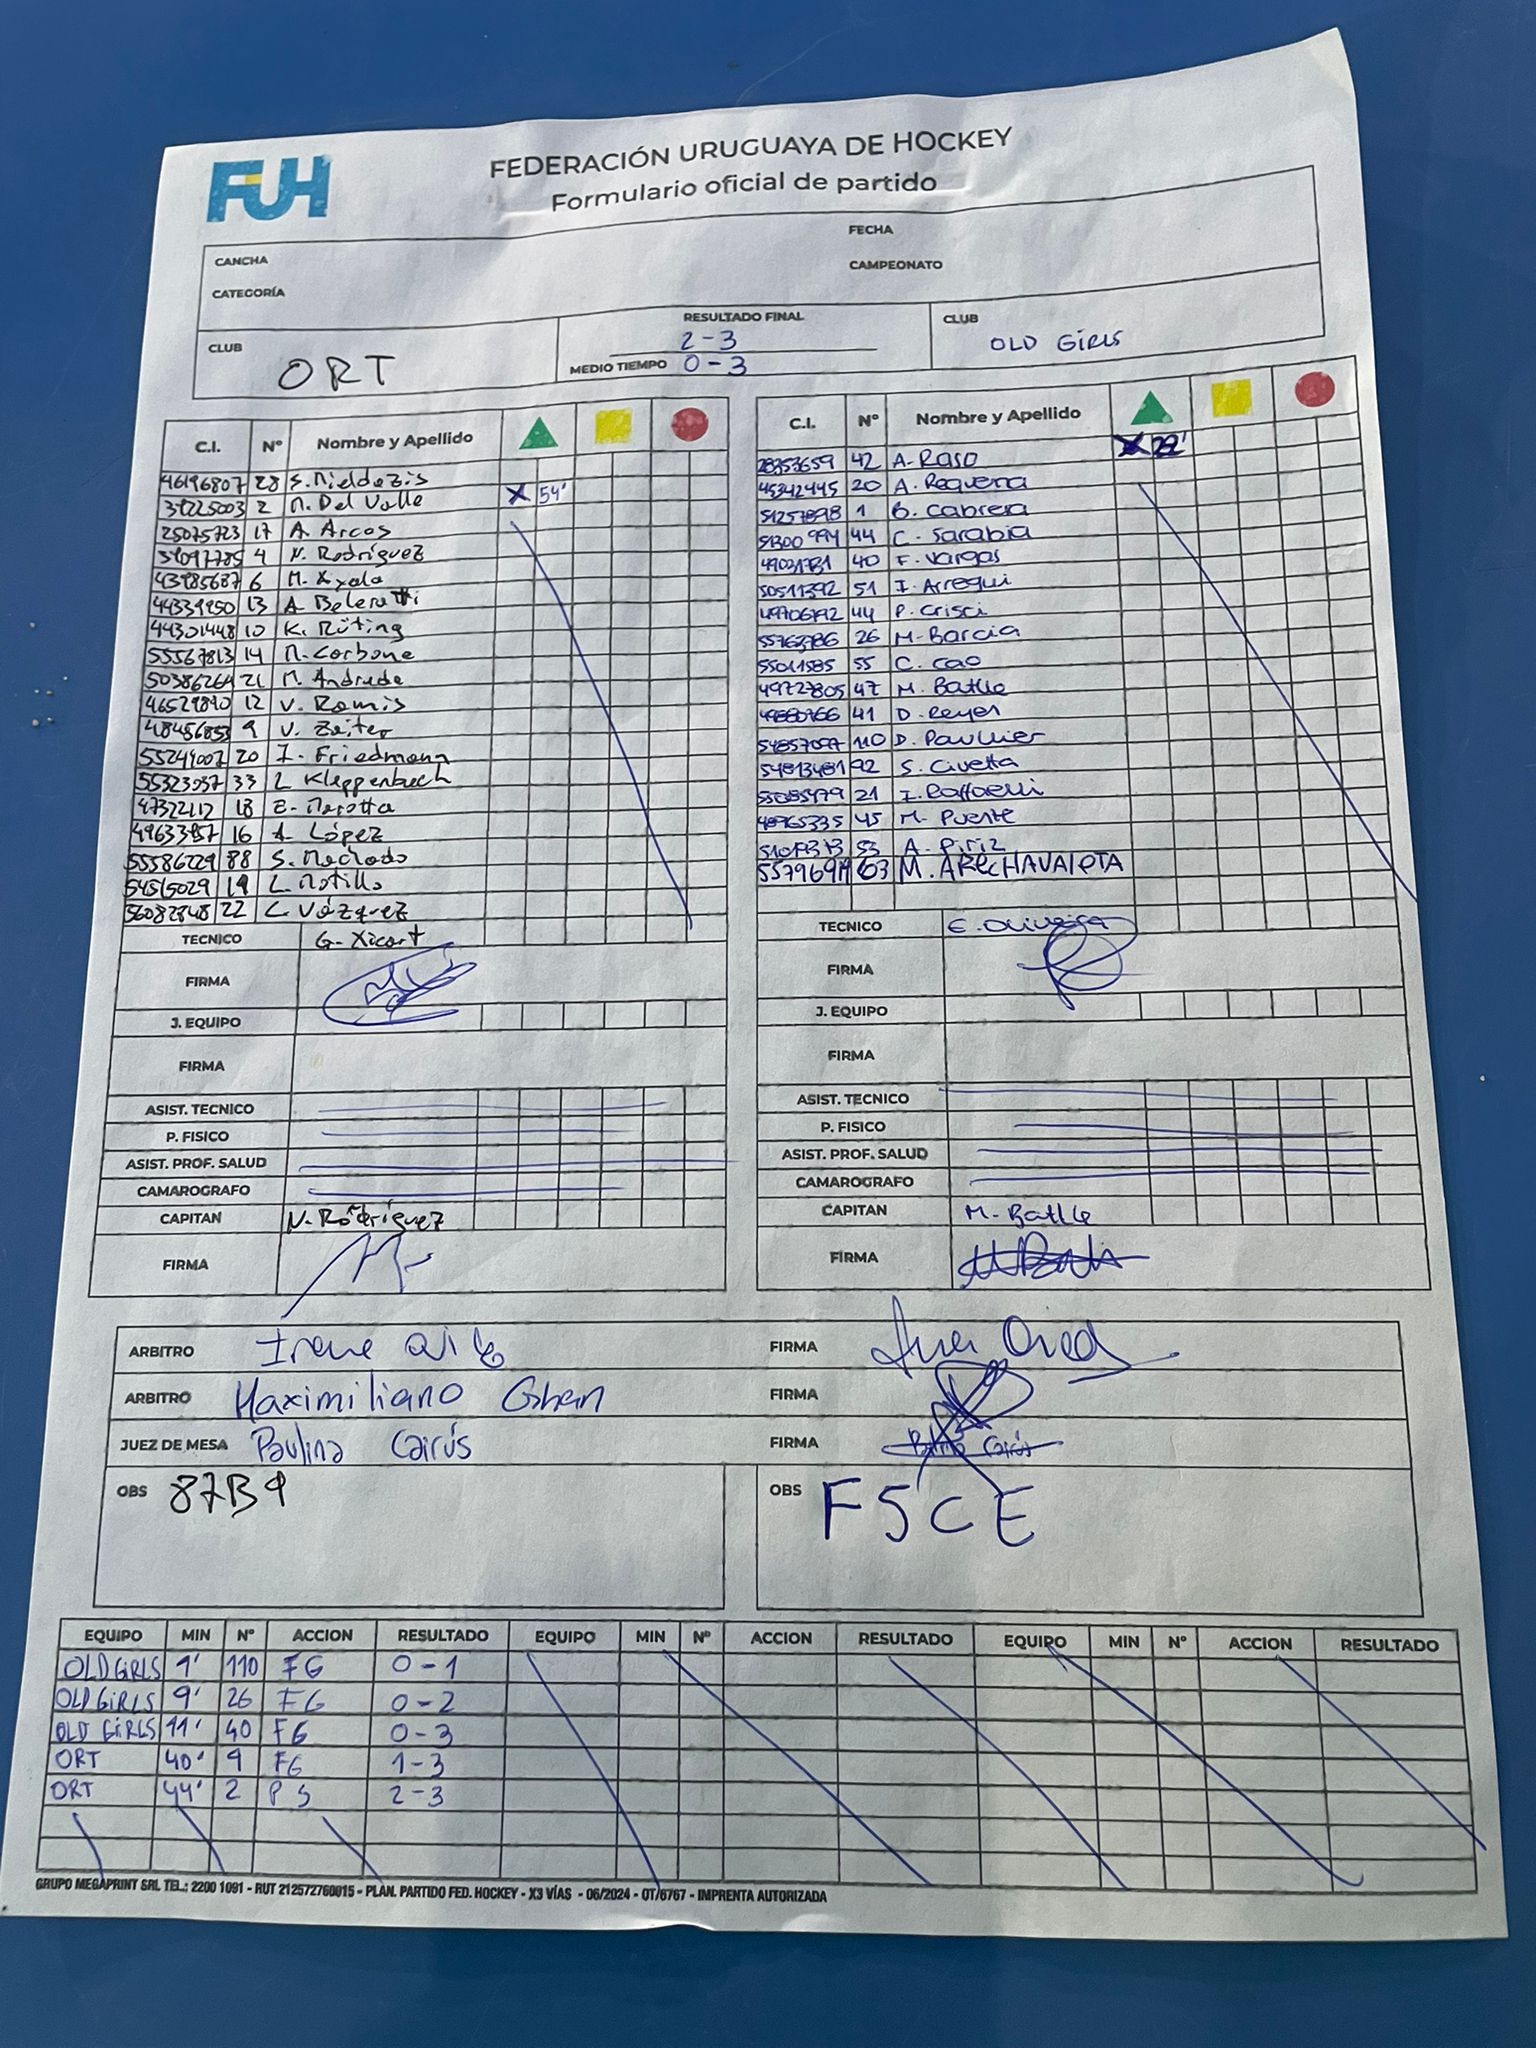 FUH
FEDERACIÓN URUGUAYA DE HOCKEY
Formulario oficial de partido
CANCHA
FECHA
CATEGORÍA
CAMPEONATO
CLUB ORT
RESULTADO FINAL 2-3
MEDIO TIEMPO 0-3
CLUB OLD GIRLS
C.I. Nº Nombre y Apellido
46196807 28 S.
2 M. Del Valle X 54'
25075723 17 A. Arcos
4 N. Rodríguez
43985687 6 M. Ayala
44339250 13 A.
44301448 10 K. Rüting
55567813 14 M. Carbone
21 M. Andrada
46529890 12 V. Ramis
9 V. Zeiter
55244007 20 I. Friedmann
55323057 33 L Kleppenbach
47322112 18 E. Marotta
49633957 16 A. López
55586229 88 S. Machado
54565029 19 L. Motillo
22 C. Vázquez
TECNICO G. Xicart
FIRMA
J. EQUIPO
FIRMA
ASIST. TECNICO
P. FISICO
ASIST. PROF. SALUD
CAMAROGRAFO
CAPITAN N. Rodríguez
FIRMA
C.I. Nº Nombre y Apellido
42 A. Raso X 22'
45342445 20 A. Requena
51257898 1 B. Cabrera
51300994 44 C. Sarabia
40 F. Vargas
50511392 51 I. Arregui
49706192 44 P. Crisci
26 M. Barcia
55011585 55 C. Cao
49727805 47 M. Batlle
41 D. Reyes
54857097 110 D. Paullier
54813481 92 S. Civetta
55085979 21 I. Raffaelli
48965335 45 M. Puente
53 A. Piriz
63 M. ARECHAVALETA
TECNICO E. Oliveira
FIRMA
J. EQUIPO
FIRMA
ASIST. TECNICO
P. FISICO
ASIST. PROF. SALUD
CAMAROGRAFO
CAPITAN M. Batlle
FIRMA
ARBITRO Irene FIRMA
ARBITRO Maximiliano FIRMA
JUEZ DE MESA Paulina Cairús FIRMA Cairús
OBS 87B9
OBS F5CE
EQUIPO MIN Nº ACCION RESULTADO EQUIPO MIN Nº ACCION RESULTADO EQUIPO MIN Nº ACCION RESULTADO
OLD GIRLS 110 FG 0-1
OLD GIRLS 9' 26 FG 0-2
OLD GIRLS 11' 40 FG 0-3
ORT 40' 9 FG 1-3
ORT 44' 2 PS 2-3
GRUPO MEGAPRINT SRL TEL.: 2200 1091 - RUT 212572760015 - PLAN. PARTIDO FED. HOCKEY - X3 VÍAS - 06/2024 - OT/6767 - IMPRENTA AUTORIZADA